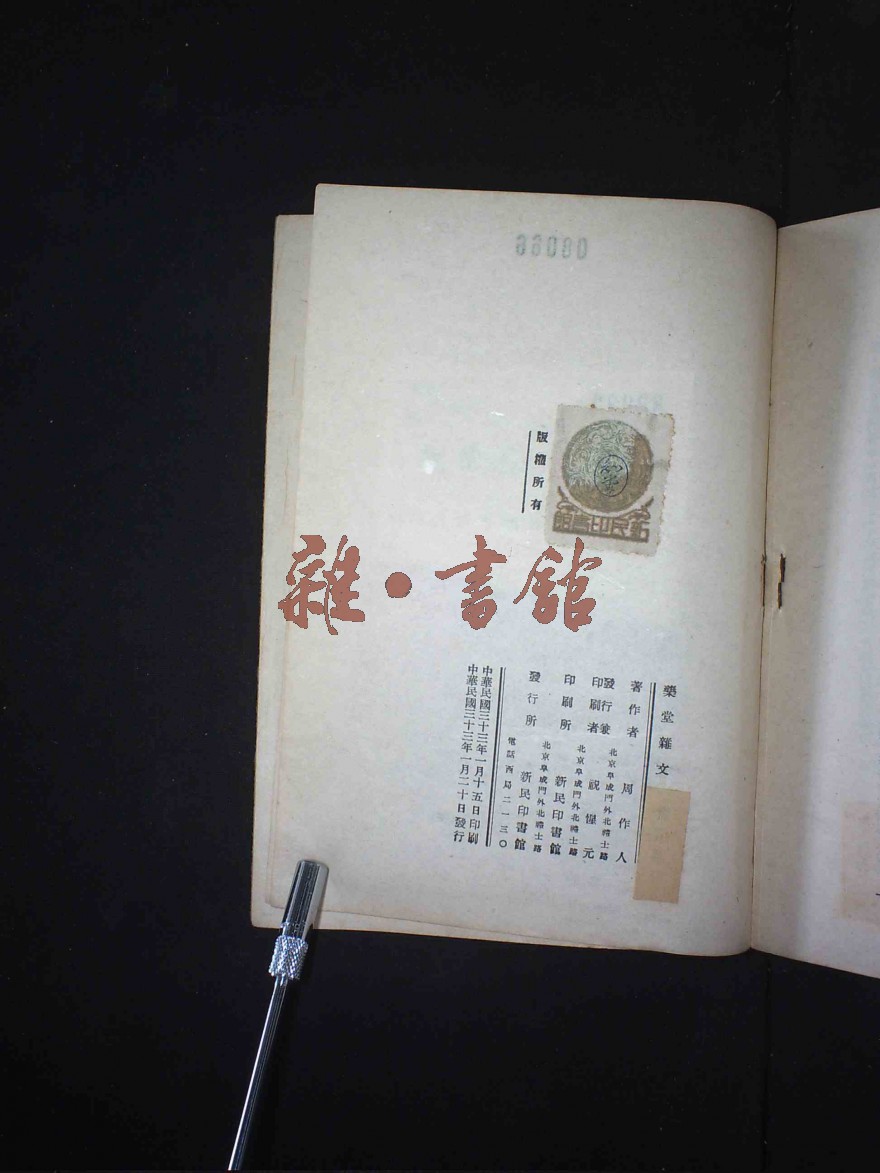 66000
版權所有
新民印書館
雜•書館
藥堂雜文
著作者 周作人
發行兼印刷者 北京阜成門外北禮士路 祝惺元
印刷所 北京阜成門外北禮士路 新民印書館
發行所 北京阜成門外北禮士路 新民印書館
電話西局二一三〇
中華民國三十三年一月十五日印刷
中華民國三十三年一月二十日發行